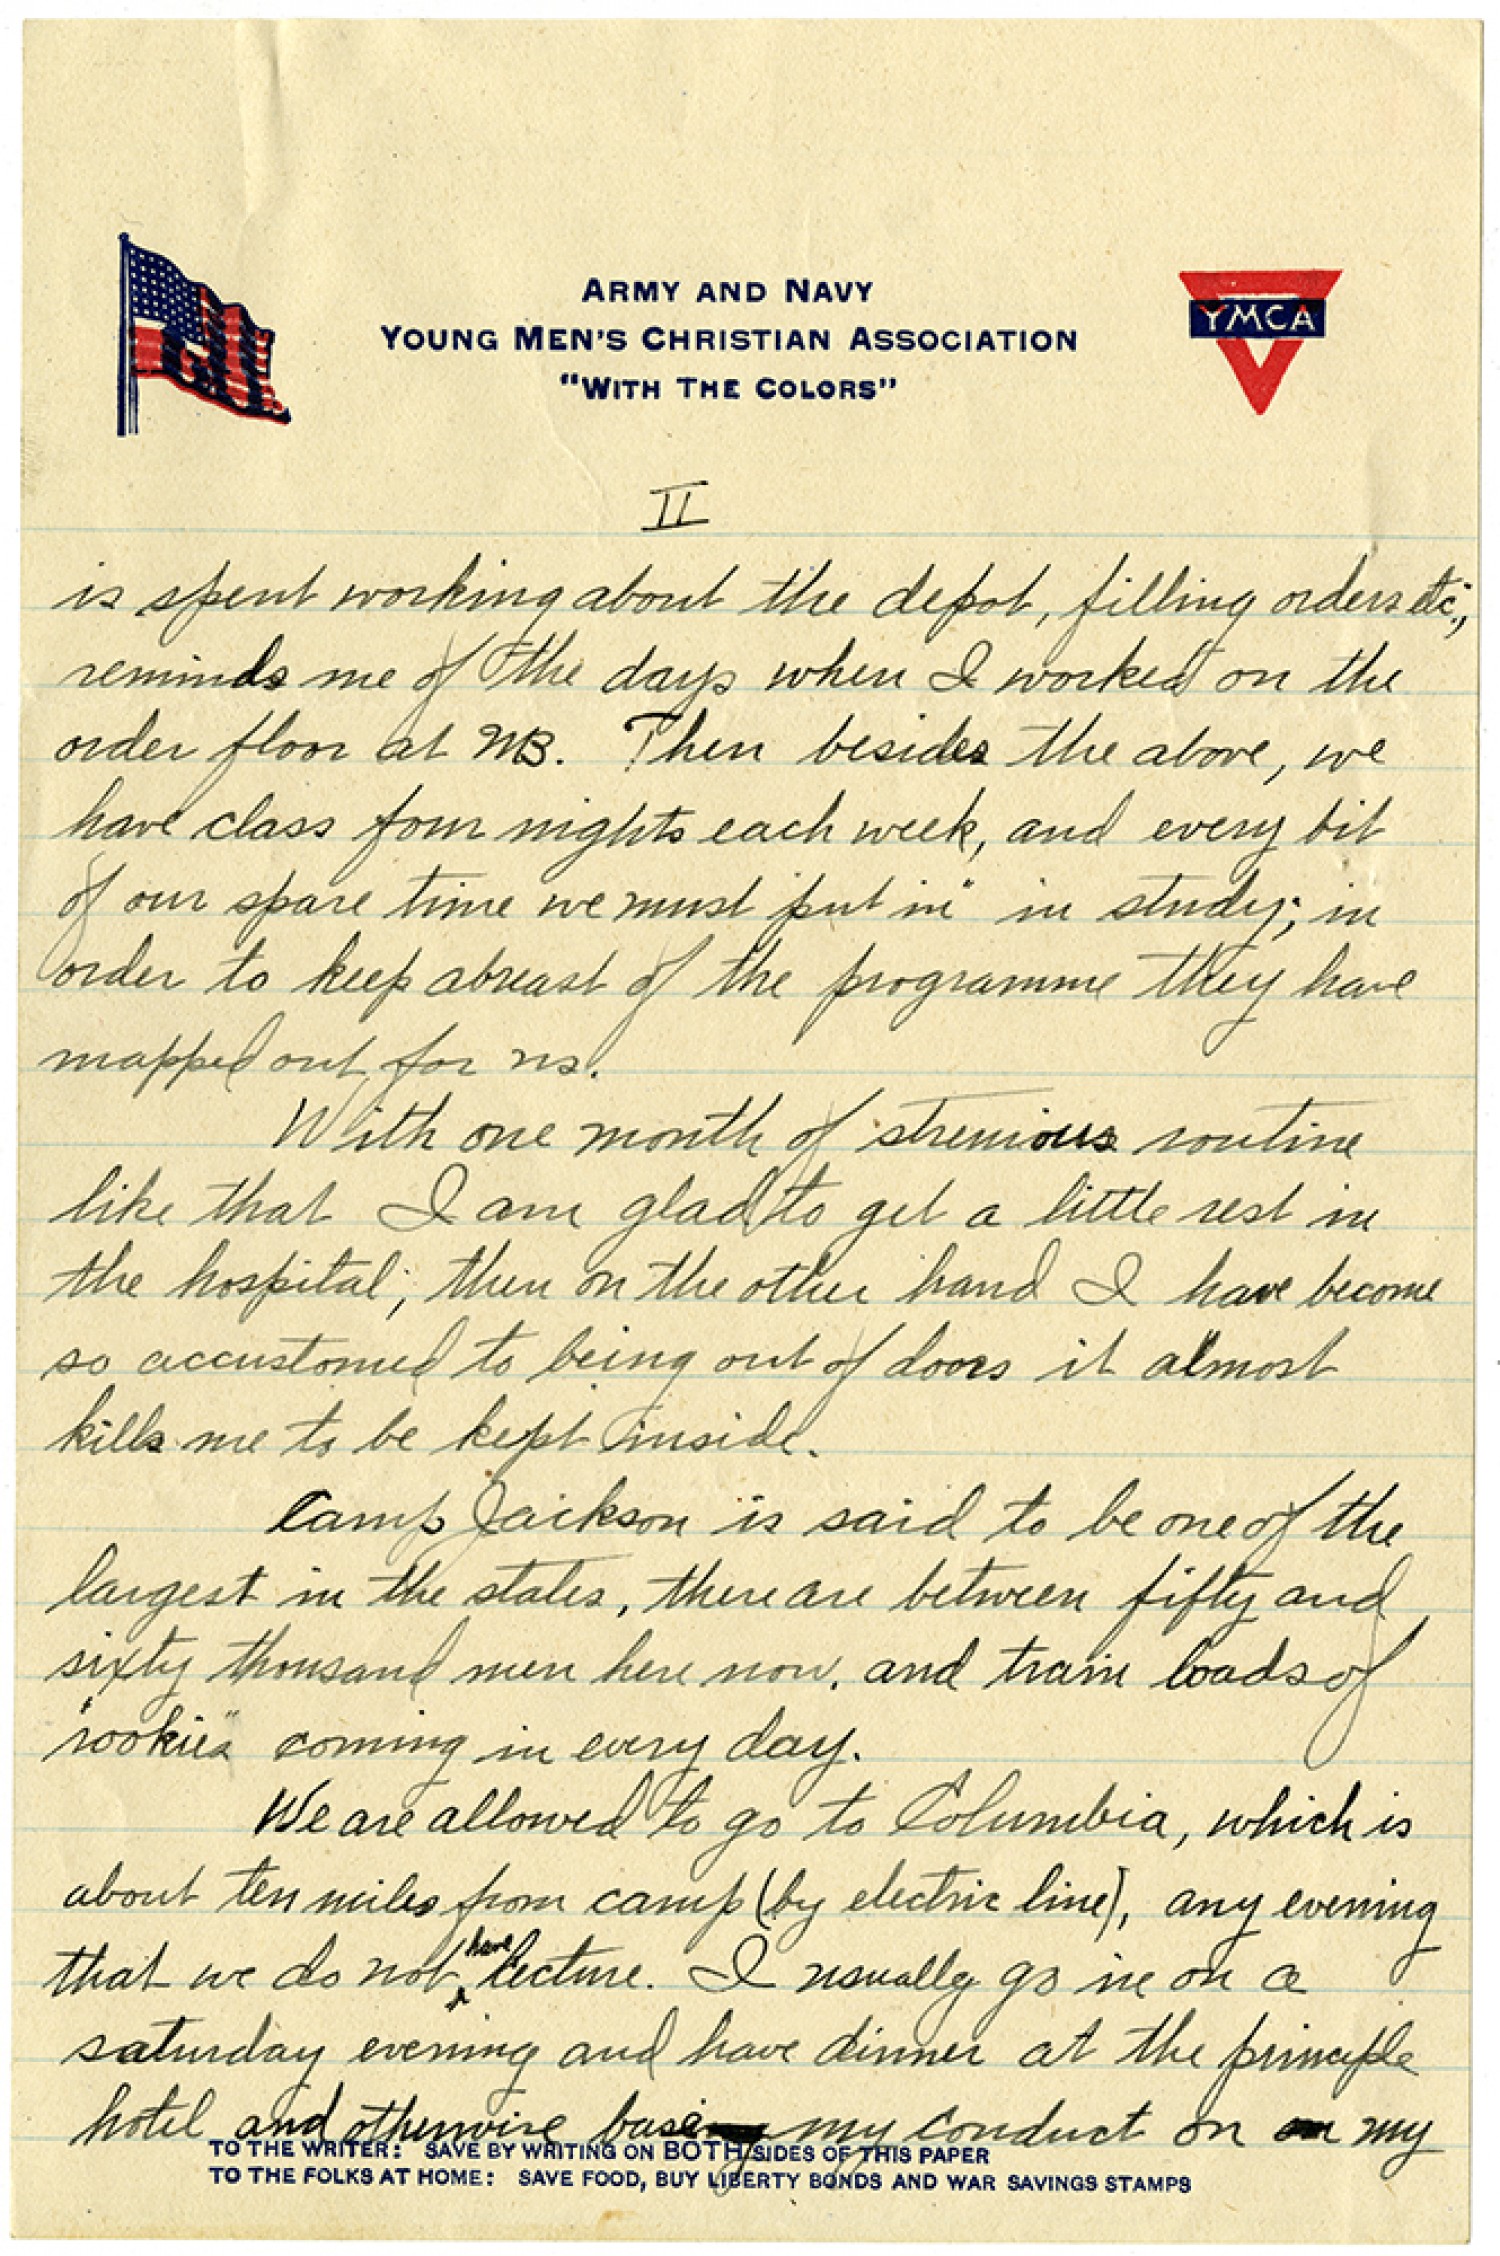 ARMY AND NAVY
YOUNG MEN'S CHRISTIAN ASSOCIATION
"WITH THE COLORS"
YMCA
II
is spent working about the depot, filling orders etc.,
reminds me of the days when I worked on the
order floor at MB. Then besides the above, we
have class four nights each week, and every bit
of our spare time we must "put in" in study; in
order to keep abreast of the programme they have
mapped out for us.
With one month of strenious routine
like that I am glad to get a little rest in
the hospital; then on the other hand I have become
so accustomed to being out of doors it almost
kills me to be kept inside.
Camp Jackson is said to be one of the
largest in the states, there are between fifty and
sixty thousand men here now, and train loads of
"rookies" coming in every day.
We are allowed to go to Columbia, which is
about ten miles from camp (by electric line), any evening
that we do not have lecture. I usually go in on a
saturday evening and have dinner at the principle
hotel and otherwise base my conduct on my
TO THE WRITER: SAVE BY WRITING ON BOTH SIDES OF THIS PAPER
TO THE FOLKS AT HOME: SAVE FOOD, BUY LIBERTY BONDS AND WAR SAVINGS STAMPS